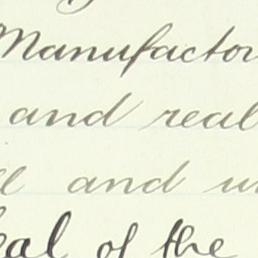 Manufactor
and real
and
eal of the